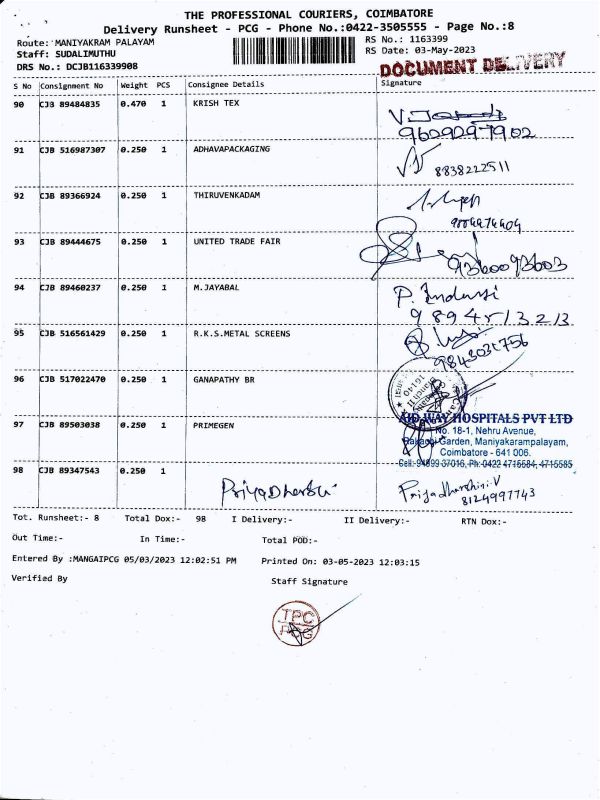 THE PROFESSIONAL COURIERS, COIMBATORE
Delivery Runsheet - PCG - Phone No.:0422-3505555 - Page No.:8
Route: MANIYAKRAM PALAYAM
RS No.: 1163399
Staff: SUDALIMUTHU
RS Date: 03-May-2023
DRS No.: DCJB116339908
DOCUMENT DELIVERY
S No Consignment No Weight PCS Consignee Details Signature
90 CJB 89484835 0.470 1 KRISH TEX
9629297902
91 CJB 516987307 0.250 1 ADHAVAPACKAGING
8838222511
92 CJB 89366924 0.250 1 THIRUVENKADAM
93 CJB 89444675 0.250 1 UNITED TRADE FAIR
9360093603
94 CJB 89460237 0.250 1 M.JAYABAL
9894513213
95 CJB 516561429 0.250 1 R.K.S.METAL SCREENS
9843031756
96 CJB 517022470 0.250 1 GANAPATHY BR
97 CJB 89503038 0.250 1 PRIMEGEN
HOSPITALS PVT LTD
No. 18-1, Nehru Avenue,
Garden, Maniyakarampalayam,
Coimbatore - 641 006.
98 CJB 89347543 0.250 1
Priyadharshini.V
8124997743
Tot. Runsheet:- 8 Total Dox:- 98 I Delivery:- II Delivery:- RTN Dox:-
Out Time:- In Time:- Total POD:-
Entered By :MANGAIPCG 05/03/2023 12:02:51 PM Printed On: 03-05-2023 12:03:15
Verified By Staff Signature
TPC
PCG